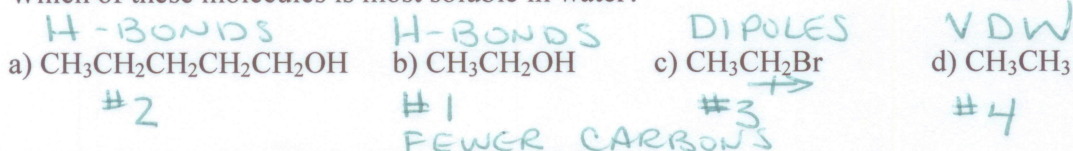 Which of these molecules is most soluble in water?
H-BONDS H-BONDS DIPOLES VDW
a) CH₃CH₂CH₂CH₂CH₂OH b) CH₃CH₂OH c) CH₃CH₂Br d) CH₃CH₃
#2 #1 #3 #4
FEWER CARBONS